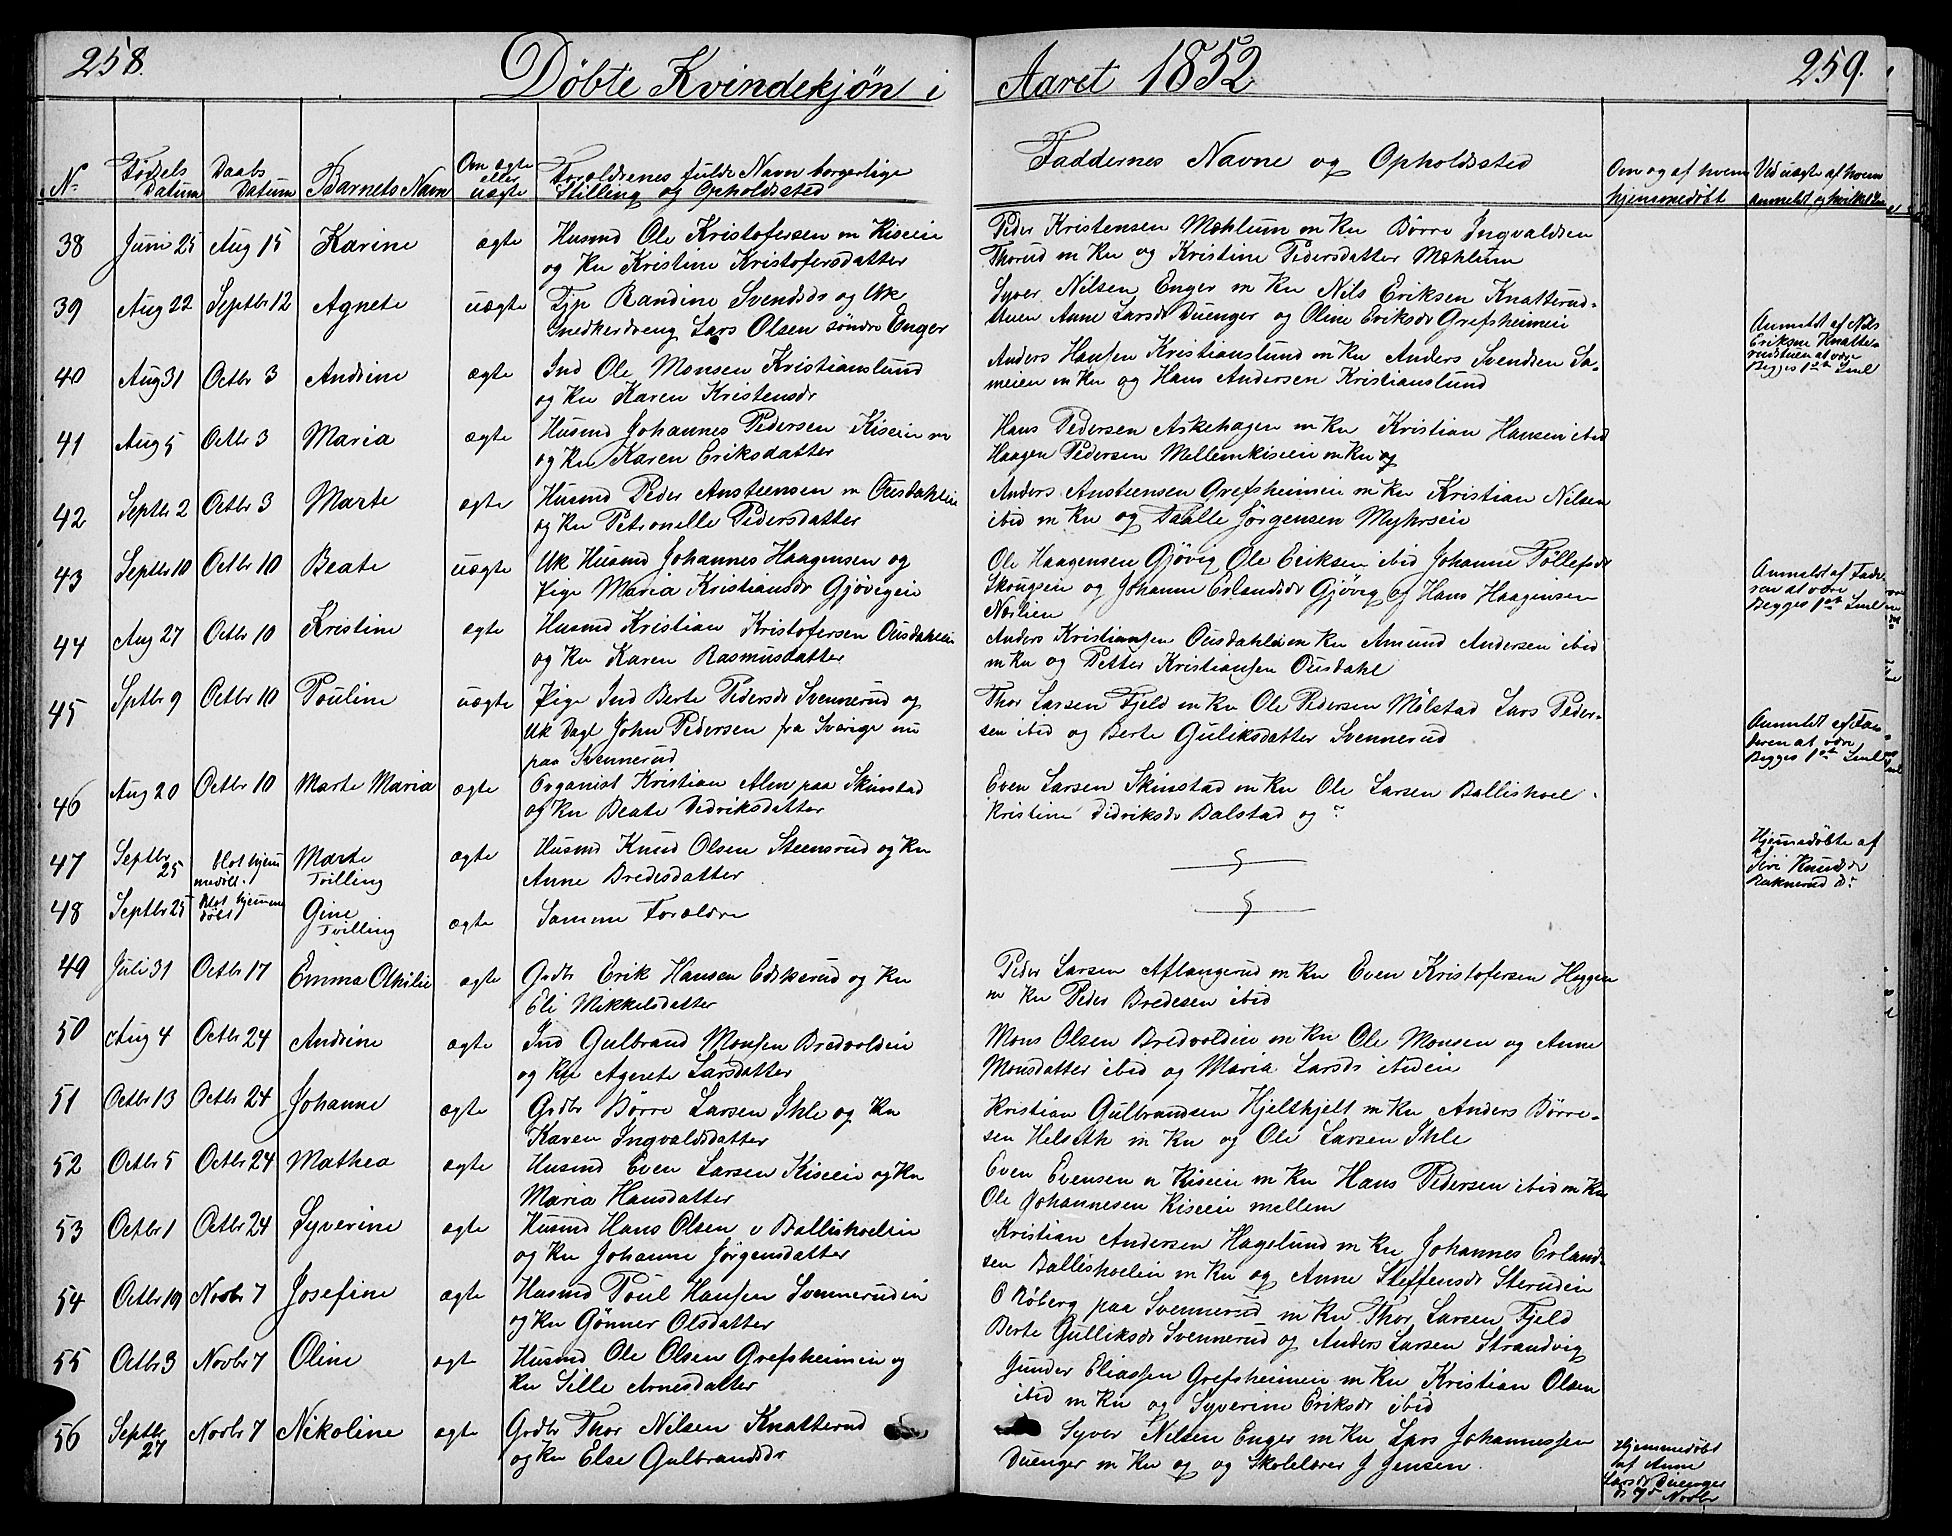 258.
Döbte Kvindekjön i
Aaret 1852
259.
N.
Födsels Datum
Daabs Datum
Barnets Navn
Om ægte eller uægte
Forældrenes fulde Navn borgerlige
Stilling og Opholdssted
Faddernes Navne og Opholdssted
Om og af hvem
hjemmedöbt
Ved uægte af hvem
anmeldt og
38 Juni 25 Aug 15 Karine ægte Husmd Ole Kristofersen m Kiseie
og Kn Kristine Kristofersdatter
Peder Kristensen Mæhlum m Kn Börre Ingvaldsen
Thorud m Kn og Kristine Pedersdatter Mæhlum
39 Aug 22 Septbr 12 Agnete uægte Tjp Randine Svendsdr og Uk
Snedkerdreng Lars Olsen söndre Enger
Syver Nilsen Enger m Kn Nils Eriksen Knatterud-
stuen Anne Larsdr Duenger og Oline Eriksdr Grefsheimeie
Anmeldt af Nils
Eriksen Knatte-
rudstuen at være
Begges 1ste Leul
40 Aug 31 Octbr 3 Andrine ægte Ind Ole Monsen Kristianslund
og Kn Karen Kristensdr
Anders Hansen Kristianslund m Kn Anders Svendsen Sa-
meien m Kn og Hans Andersen Kristianslund
41 Aug 5 Octbr 3 Maria ægte Husmd Johannes Pedersen Kiseie m
og Kn Karen Eriksdatter
Hans Pedersen Askehagen m Kn Kristian Hansen ibid
Haagen Pedersen Mellemkiseie m Kn og
42 Septbr 2 Octbr 3 Marte ægte Husmd Peder Anstensen m Ousdahleie
og Kn Petronelle Pedersdatter
Anders Anstensen Grefsheimeie m Kn Kristian Nilsen
ibid m Kn og Paalle Jörgensen Myhrseie
43 Septbr 10 Octbr 10 Beate uægte Uk Husmd Johannes Haagensen og
Pige Maria Kristiansdr Gjövigeie
Ole Haagensen Gjövig Ole Eriksen ibid Johanne Tollefsdr
Skougseie og Johanne Erlandsdr Gjövig og Hans Haagensen
Næslien
Anmeldt af Fade-
ren at være
Begges 1ste Leul
44 Aug 27 Octbr 10 Kristine ægte Husmd Kristian Kristofersen Ousdahleie
og Kn Karen Rasmusdatter
Anders Kristiansen Ousdahleie m Kn Amund Andersen ibid
m Kn og Petter Kristiansen Ousdahl
45 Sptbr 9 Octbr 10 Pouline uægte Pige Ind Berte Pedersdr Svennerud og
Uk Dagl John Pedersen fra Sverige nu
paa Svennerud
Thor Larsen Fjeld m Kn Ole Pedersen Mölstad Lars Peder-
sen ibid og Berte Guliksdatter Svennerud
Anmeldt af Fa-
deren at være
Begges 1ste Leul
46 Aug 20 Octbr 10 Marte Maria ægte Organist Kristian Alm paa Skinstad
og Kn Beate Dedriksdatter
Even Larsen Skinstad m Kn Ole Larsen Ballishoel
Kristine Didriksdr Balstad og
47 Septbr 25 blot hjem medöbt. Marte Tvilling ægte Husmd Knud Olsen Steensrud og Kn
Anne Bredesdatter
Hjemedöbte af
Siri Knudsdr
48 Septbr 25 Blot hjemme döbt Gine Tvilling ægte Samme Forældre
49 Juli 31 Octbr 17 Emma Othilie ægte Grdbr Erik Hansen Eskerud og Kn
Eli Mikkelsdatter
Peder Larsen Aflangerud m Kn Even Kristofersen Haggen
m Kn Peder Bredesen ibid
50 Aug 4 Octbr 24 Andrine ægte Ind Gulbrand Monsen Bredvoldeie
og Kn Agnete Larsdatter
Mons Olsen Bredvoldeie m Kn Ole Monsen og Anne
Monsdatter ibid og Maria Larsdr ibideie
51 Octbr 13 Octbr 24 Johanne ægte Grdbr Börre Larsen Ihle og Kn
Karen Ingvaldsdatter
Kristian Gulbrandsen Hjelthjelt m Kn Anders Börre-
sen Helseth m Kn og Ole Larsen Ihle
52 Octbr 5 Octbr 24 Mathea ægte Husmd Even Larsen Kiseie og Kn
Maria Hansdatter
Even Evensen n Kiseie m Kn Hans Pedersen ibid m Kn
Ole Johannesen Kiseie mellem
53 Octbr 1 Octbr 24 Syverine ægte Husmd Hans Olsen v Ballishoeleie
og Kn Johanne Jörgensdatter
Kristian Andersen Hagelund m Kn Johannes Erland-
sen Ballishoeleie m Kn og Anne Steffensdr Sterudeie
54 Octbr 19 Novbr 7 Josefine ægte Husmd Poul Hansen Svennerudeie
og Kn Gönner Olsdatter
O Roberg paa Svennerud m Kn Thor Larsen Fjeld
Berte Gulliksdr Svennerud og Anders Larsen Strandvig
55 Octbr 3 Novbr 7 Oline ægte Husmd Ole Olsen Grefsheimeie og
Kn Sille Arnesdatter
Gunder Eliassen Grefsheimeie m Kn Kristian Olsen
ibid m Kn og Syverine Eriksdr ibid
56 Septbr 27 Novbr 7 Nikoline ægte Grdbr Thor Nilsen Knatterud
og Kn Else Gulbrandsdr
Syver Nilsen Enger m Kn Lars Johannessen
Duenger m Kn og og Skolelærer J Jensen
Hjemmedöbt
af Anne
Larsdr Duenger
d 7de Novbr